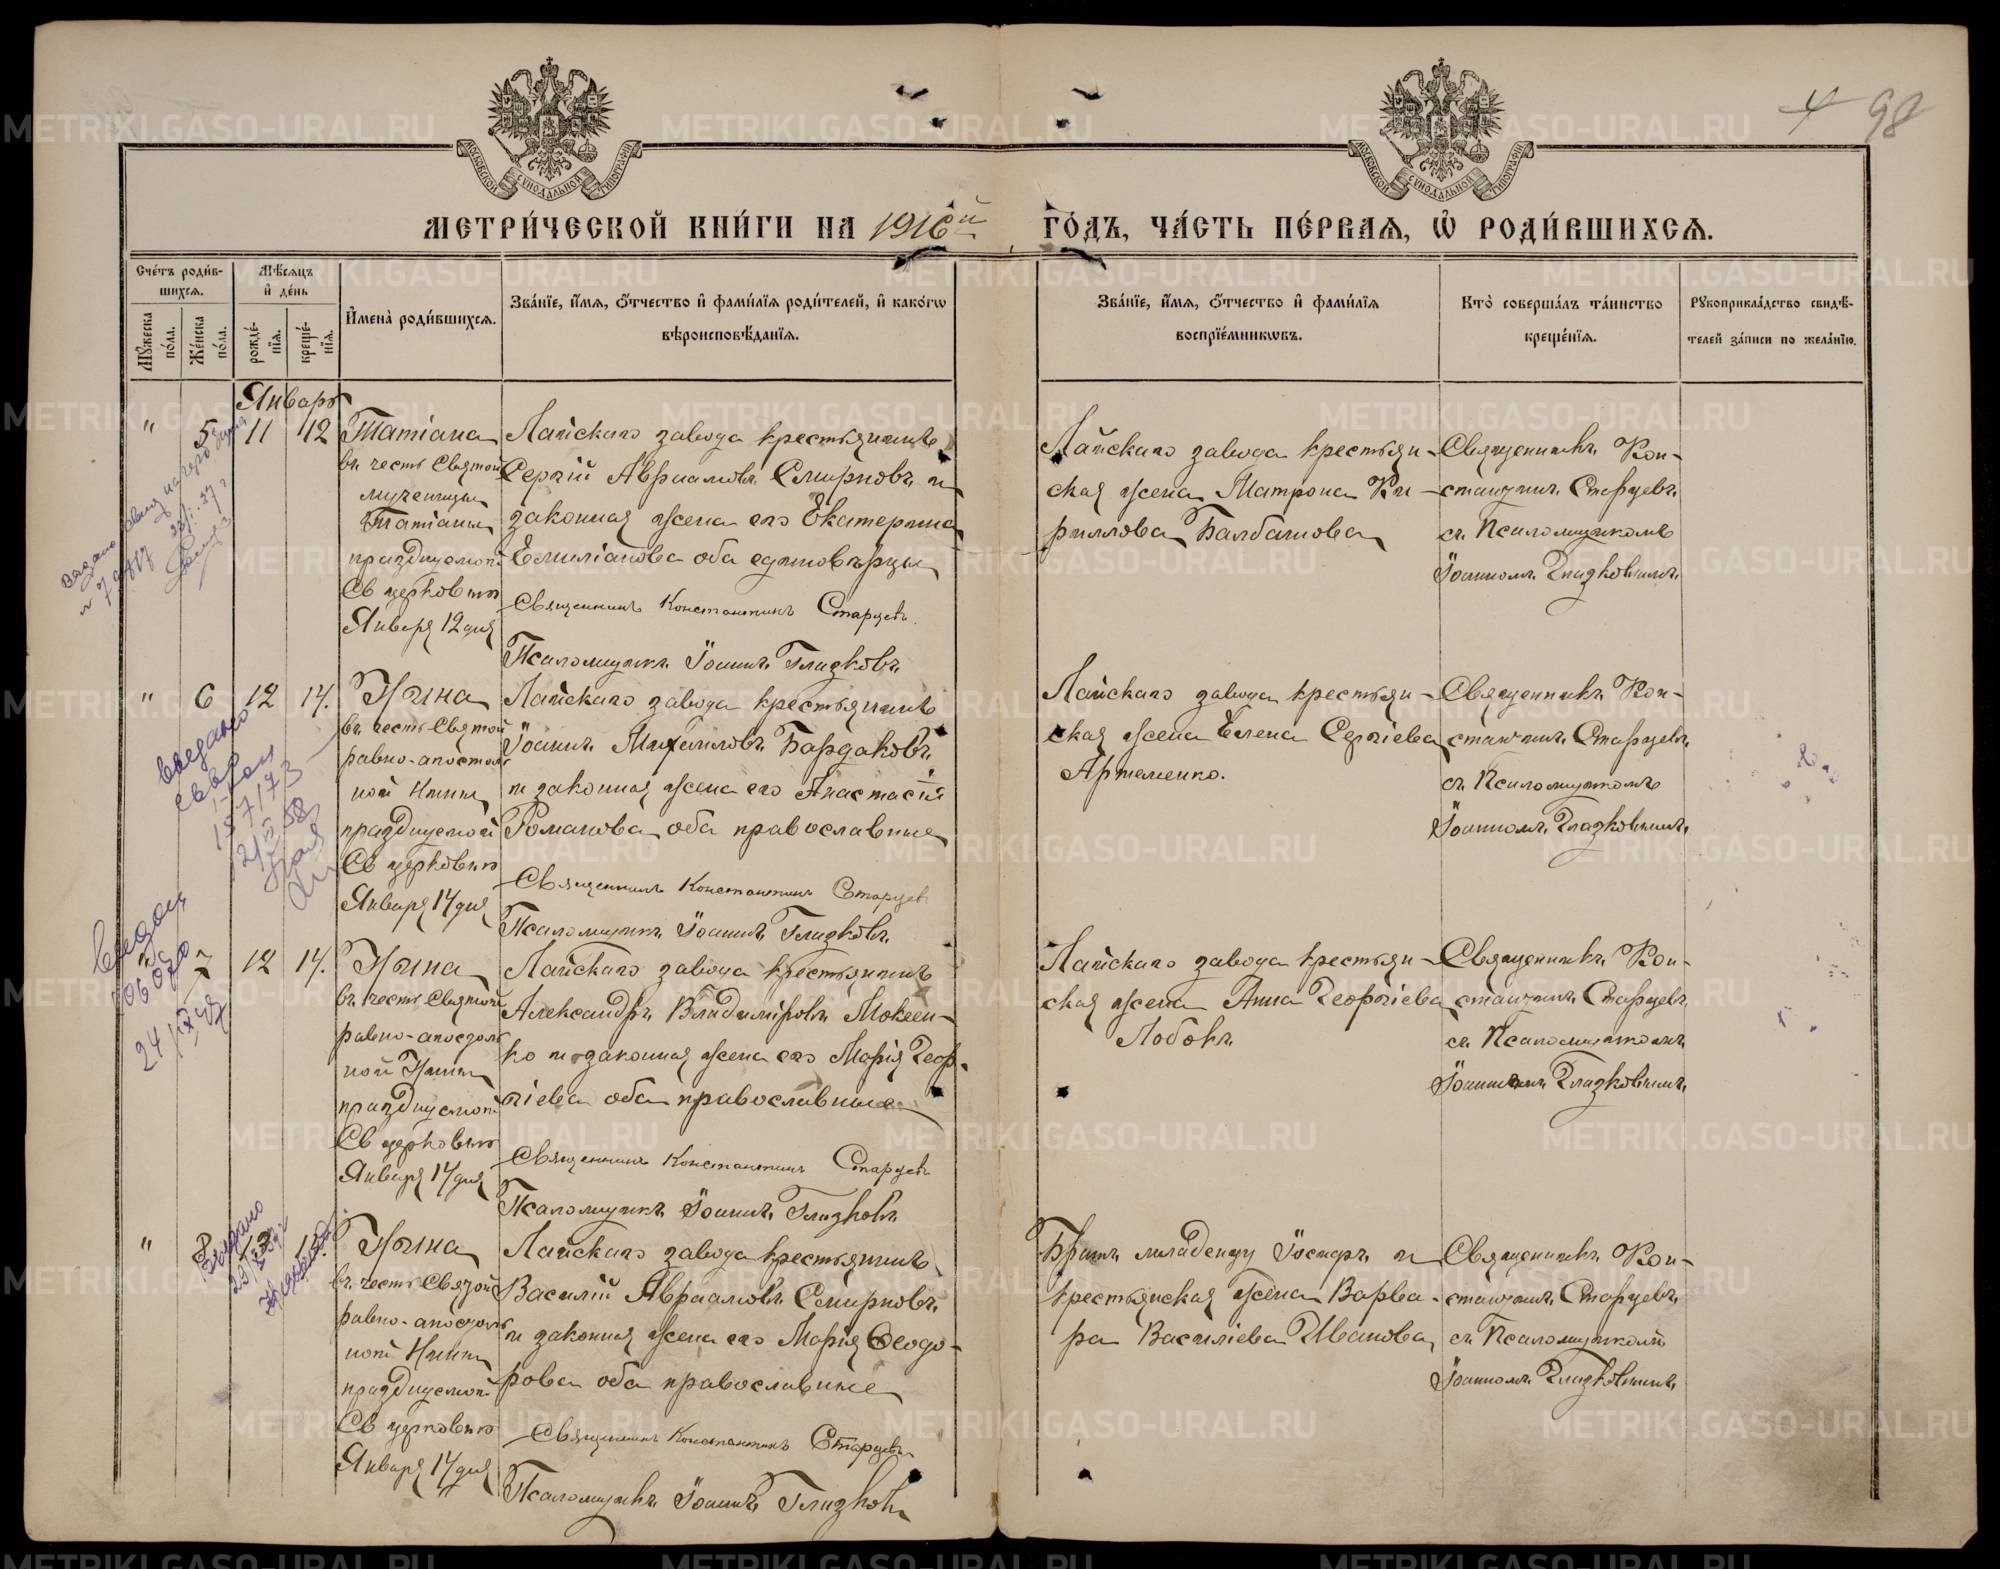 98
МОСКОВСКОЙ СѴНОДАЛЬНОЙ ТИПОГРАФІИ
МОСКОВСКОЙ СѴНОДАЛЬНОЙ ТИПОГРАФІИ
МЕТРИ́ЧЕСКОЙ КНИ́ГИ НА 1916й ГО́ДЪ, ЧА́СТЬ ПЕ́РВАѦ, Ѡ҆ РОДИ́ВШИХСѦ.
Счетъ роди́в-
шихсѧ.
Мꙋжеска по́ла.
Же́нска по́ла.
Мѣсѧцъ
и҆ де́нь
рожде́-
нїѧ.
креще́-
нїѧ.
И҆мена̀ роди́вшихсѧ.
Зва́нїе, и҆́мѧ, ѻ҆́тчество и҆ фами́лїѧ роди́телей, и҆ како́гѡ
вѣроисповѣ́данїѧ.
Зва́нїе, и҆́мѧ, ѻ҆́тчество и҆ фами́лїѧ
воспрїе́мникѡвъ.
Кто̀ соверша́лъ та́инство
креще́нїѧ.
Рꙋкоприкла́дство свидѣ́-
телей за́писи по жела́нїю.
Январь
" 5 11 12
Татіана
въ честь Святой
мученицы
Татіаны
празднуемой
Св церковью
Января 12 дня
Лайскаго завода крестьянинъ
Сергій Авраамовъ Смирновъ и
законная жена его Екатерина
Емиліанова оба единоверцы
Священникъ Константинъ Старцевъ
Псаломщикъ Іоаннъ Гладковъ
Лайскаго завода крестьян-
ская жена Матрона Ки-
риллова Балбашова
Священникъ Кон-
стантинъ Старцевъ
съ Псаломщикомъ
Іоанномъ Гладковымъ
" 6 12 14.
Нина
въ честь Святой
равно-апостоль
ной Нины
празднуемой
Св церковью
Января 14 дня
Лайскаго завода крестьянинъ
Іоаннъ Михаиловъ Бардаковъ
и законная жена его Анастасія
Романова оба православные
Священникъ Константинъ Старцевъ
Псаломщикъ Іоаннъ Гладковъ
Лайскаго завода крестьян-
ская жена Елена Сергіева
Артеменко.
Священникъ Кон-
стантинъ Старцевъ
съ Псаломщикомъ
Іоанномъ Гладковымъ
" 7 12 14.
Нина
въ честь Святой
равно-апостоль
ной Нины
празднуемой
Св церковью
Января 14 дня
Лайскаго завода крестьянинъ
Александръ Владиміровъ Мокеен-
ко и законная жена его Марія Геор-
гіева оба православные
Священникъ Константинъ Старцевъ
Псаломщикъ Іоаннъ Гладковъ
Лайскаго завода крестьян-
ская жена Анна Георгіева
Лобовъ
Священникъ Кон-
стантинъ Старцевъ
съ Псаломщикомъ
Іоанномъ Гладковымъ
" 8
Нина
въ честь Святой
равно-апостоль
ной Нины
празднуемой
Св церковью
Января 14 дня
Лайскаго завода крестьянинъ
Василій Авраамовъ Смирновъ
и законная жена его Марія Ѳеодо-
рова оба православные
Священникъ Константинъ Старцевъ
Псаломщикъ Іоаннъ Гладковъ
Братъ младенцу и
крестьянская жена Варва-
ра Василіева Иванова
Священникъ Кон-
стантинъ Старцевъ
съ Псаломщикомъ
Іоанномъ Гладковымъ
METRIKI.GASO-URAL.RU